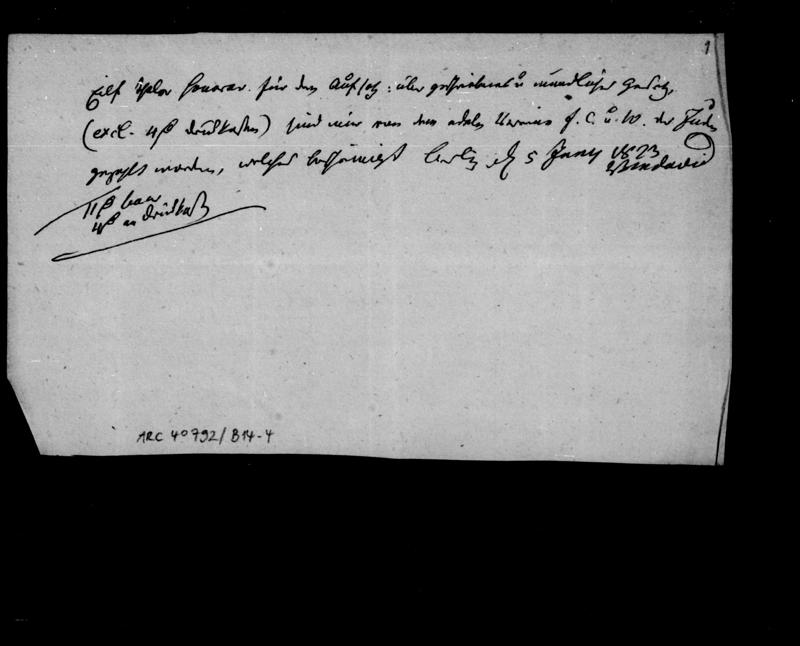 1
Eilf Thaler Honorar. für den Aufsatz: über geschriebenes u mündliches Gesetz,
(excl. 4 β Druckkosten) sind mir von dem edlen Verein f. C. u. W. der Juden
gezahlt worden, welches bescheinigt Berlin d 5 Juny 1823
Bendavid
11 β baar
4 β an Druckkost
ARC 4º 792/B14-4